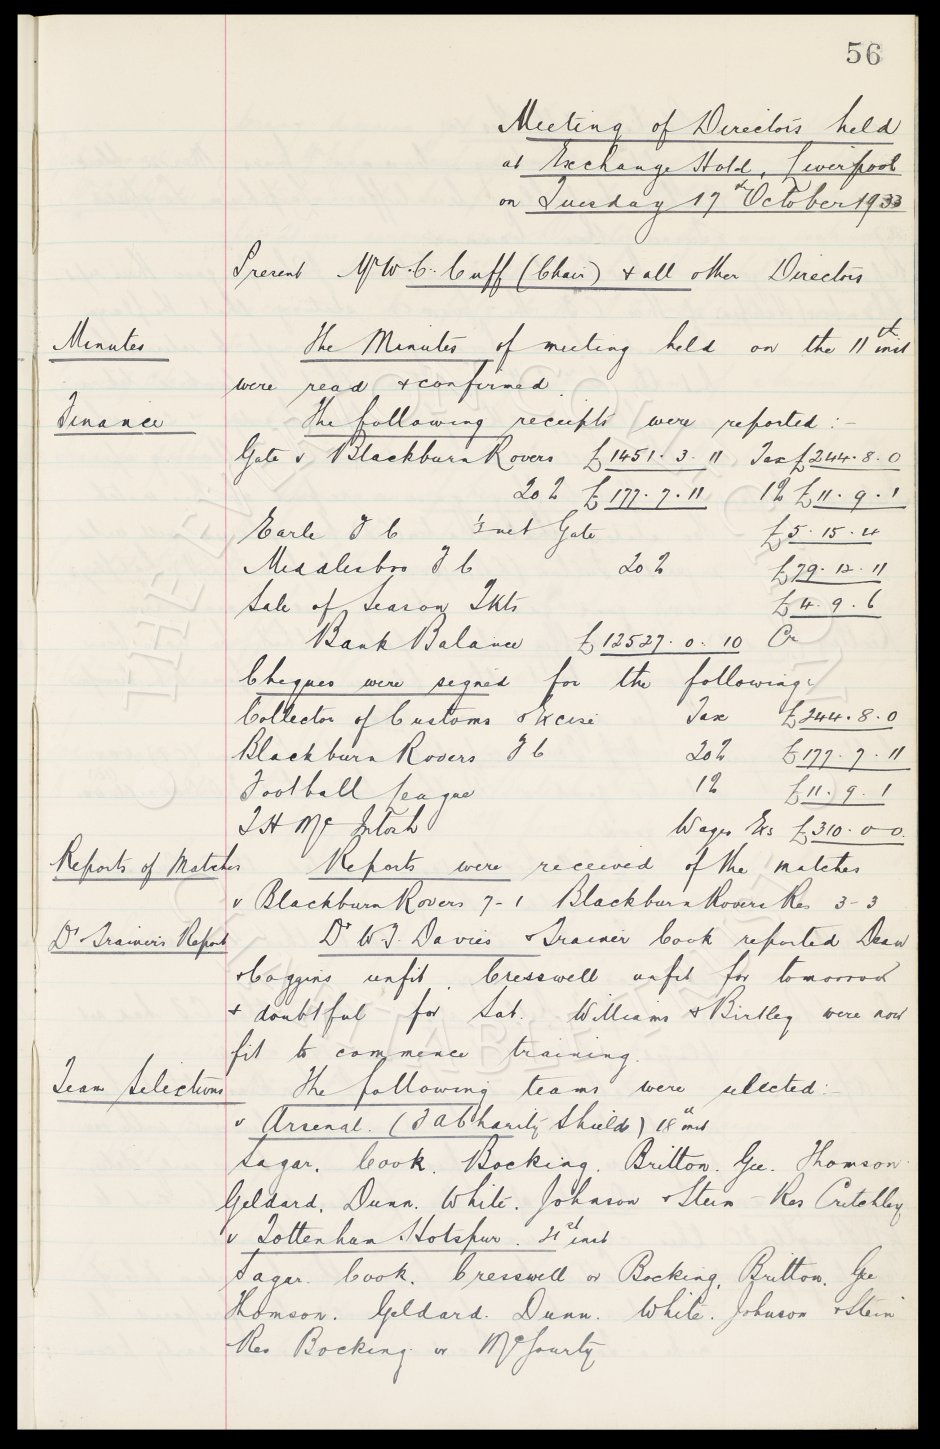 56
Meeting of Directors held
at Exchange Hotel, Liverpool
on Tuesday 17th October 1933
Present Mr W. C. Cuff (Chair) & all other Directors
Minutes The Minutes of meeting held on the 11th inst
were read & confirmed
Finance The following receipts were reported :-
Gate v Blackburn Rovers £1451. 3. 11 Tax £244. 8. 0
20% £177. 7. 11 1% £11. 9. 1
Earle F C ½ net Gate £5. 15. 4
Middlesbro F C 20% £79. 12. 11
Sale of Season Tkts £4. 9. 6
Bank Balance £12527. 0. 10 Cr
Cheques were signed for the following:
Collector of Customs & Excise Tax £244. 8. 0
Blackburn Rovers F C 20% £177. 7. 11
Football League 1% £11. 9. 1
T H McIntosh Wages Exs £310. 0 0.
Reports of Matches Reports were received of the matches
v Blackburn Rovers 7-1 Blackburn Rovers Res 3-3
Dr & Trainer's Report Dr W.T. Davies & Trainer Cook reported Dean
& Coggins unfit. Cresswell unfit for tomorrow
& doubtful for Sat. Williams & Birtley were now
fit to commence training.
Team Selections The following teams were selected:-
v Arsenal. (F A Charity Shield) 18th inst
Sagar. Cook. Bocking. Britton. Gee. Thomson.
Geldard. Dunn. White. Johnson & Stein - Res Critchley
v Tottenham Hotspur. 21st inst
Sagar. Cook. Cresswell or Bocking, Britton. Gee
Thomson. Geldard. Dunn. White. Johnson & Stein
Res Bocking or McGourty
THE EVERTON FOOTBALL CLUB
COMPANY LIMITED